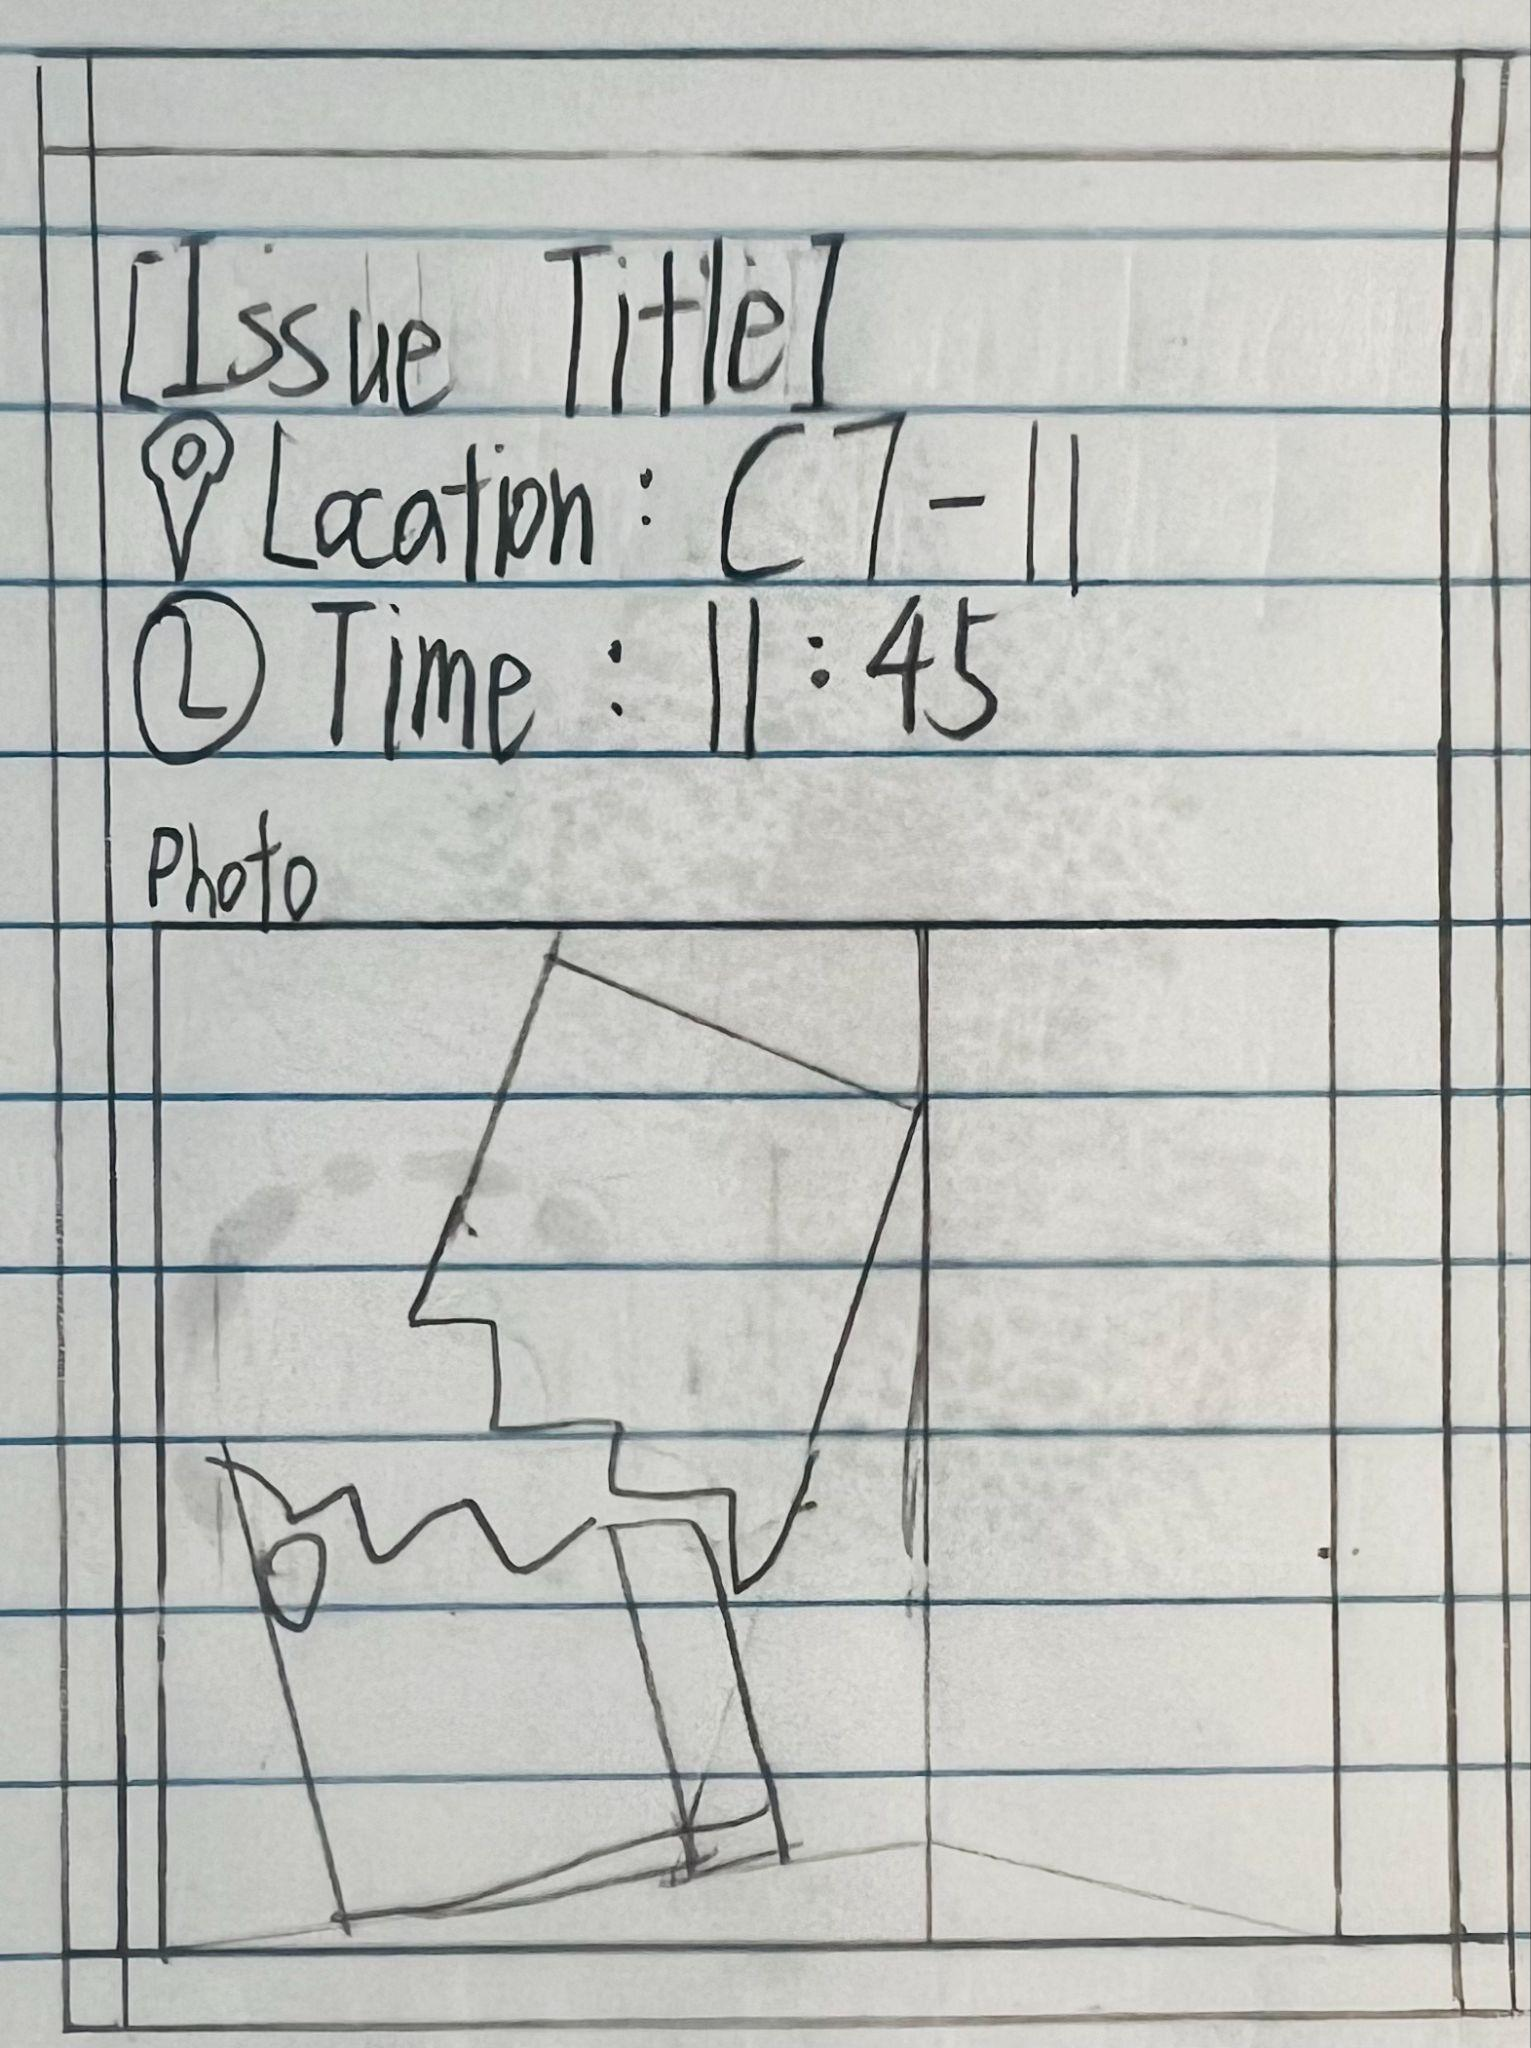 [Issue Title]
Location: C7-11
Time: 11:45
Photo